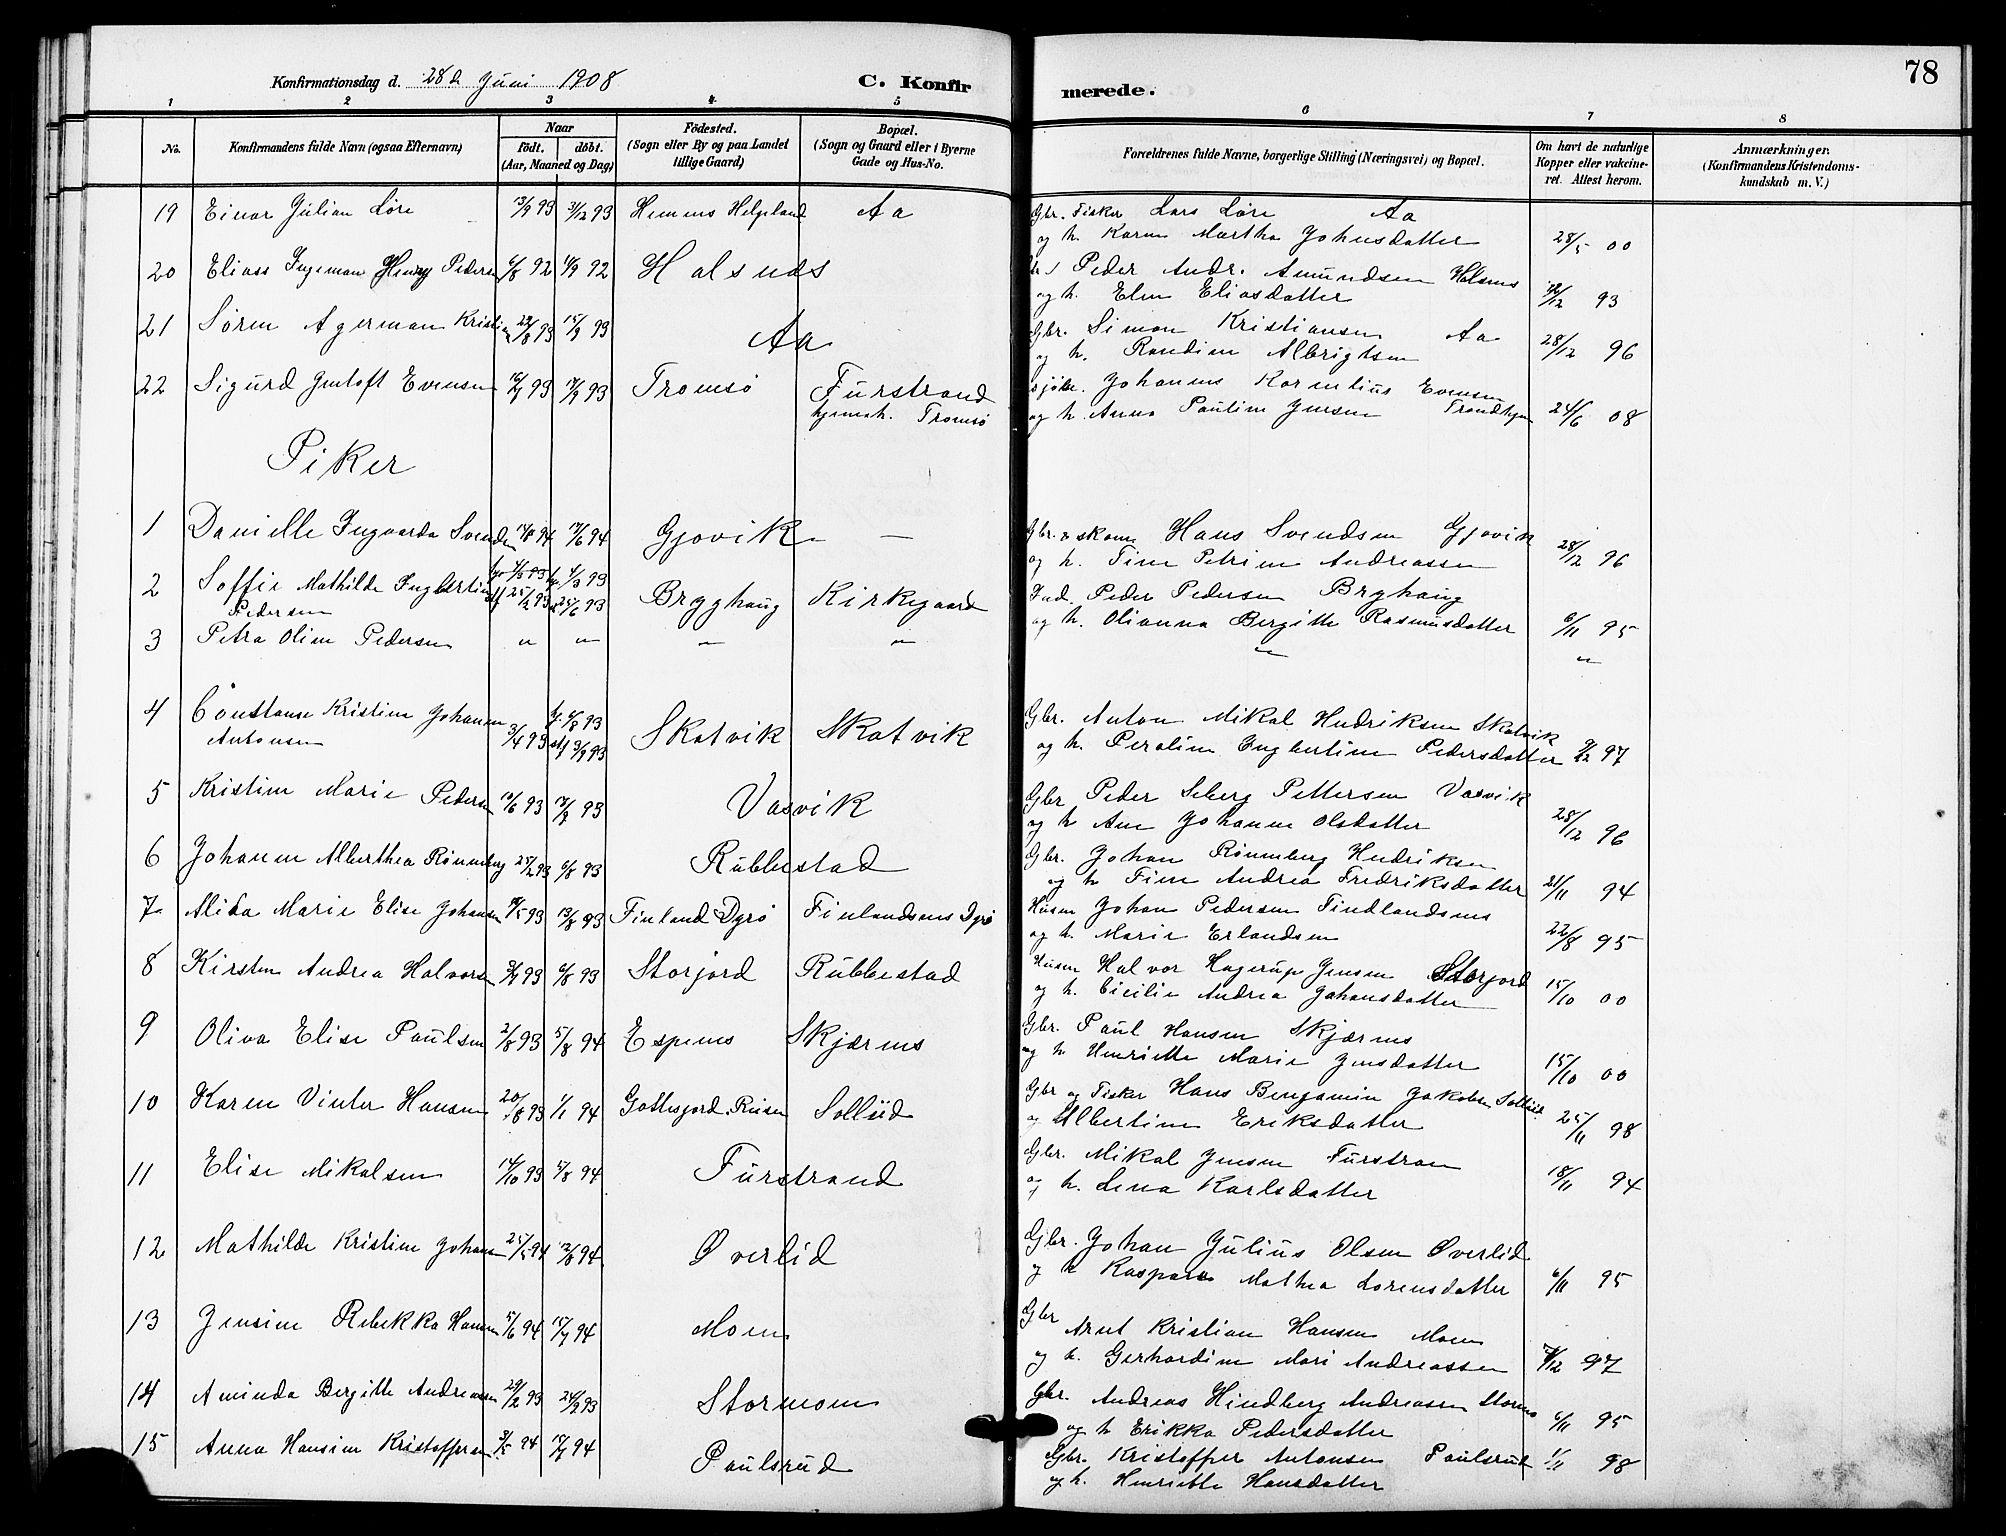 78
Konfirmationsdag d. 28d Juni 1908 C. Konfirmerede.
1 2 3 4 5 6 7 8
No. Konfirmandens fulde Navn (ogsaa Efternavn) Naar födt. döbt. (Aar, Maaned og Dag) Födested. (Sogn eller By og paa Landet tillige Gaard) Bopæl. (Sogn og Gaard eller i Byerne Gade og Hus-No. Forældrenes fulde Navne, borgerlige Stilling (Næringsvei) og Bopæl. Om havt de naturlige Kopper eller vakcineret. Attest herom. Anmærkninger. (Konfirmandens Kristendomskundskab m. V.)
19 Einar Julian Löre 13/9 93 3/12 93 Hemnes Helgeland Aa Gbr. Fisker Lars Löre Aa
og h. Karen Martha Johnsdatter 28/5 00
20 Eliass Ingeman Henry Pedersen 6/8 92 11/9 92 Halsnæs Peder Andr. Amundsen Halsnes
og h. Elen Eliasdatter 12 93
21 Sören Agerman Kristian 22/8 93 15/9 93 Aa Gbr. Simon Kristiansen Aa
og h. Randine Albrigtsen 28/12 96
22 Sigurd Gustoft Evensen 93 93 Tromsö Furstrand Johannes Kornelius Evensen
hjemsh. Tromsö og h. Anna Pauline Jensen Trondhjem 24/6 08
Piker
1 Danielle Ingvarda Svendsen 94 17/6 94 Gjovik — Gbr. & skom. Hans Svendsen Gjovik
og h. Tine Petrine Andreassen 28/12 96
2 Soffie Mathilde Ingbertine 25/2 93 93 Bryghaug Kirkegaard Ind. Peder Pedersen Bryhaug
Pedersen og h. Olianna Bergitte Rasmusdatter 6/11 95
3 Petra Oline Pedersen " " " " " "
4 Constanse Kristine Johanne 3/4 93 hj. 6/8 93 Skatvik Skatvik Gbr. Anton Mikal Hendriksen Skatvik
Antonsen stf 3/9 93 og h. Peroline Ingbertine Pedersdatter 97
5 Kristine Marie Pedersen 10/6 93 17/9 93 Vasvik Gbr Peder Seberg Pettersen Vasvik
og h Ane Johanne Olsdatter 28/12 96
6 Johanne Alberthea Rönneberg 25/2 93 6/8 93 Rubbestad Gbr. Johan Rönneberg Hendriksen
og h Tine Andrea Fredriksdatter 21/11 94
7 Alida Marie Elise Johansen 19/5 93 13/8 93 Finland Dyrö Finlandsnes Dyrö Husm Johan Pedersen Findlandsnes
og h. Marie Erlandsen 22/8 95
8 Kirsten Andrea Halvorsen 93 6/8 93 Storjord Rubbestad Husm Halvor Hagerup Jensen Storjord
og h. Cicilie Andrea Johansdatter 15/10 00
9 Oliva Elise Paulsen 2/8 93 5/8 94 Espenes Skjærnes Gbr. Paul Hansen Skjærnes
og h Henriette Marie Jensdatter 15/10 00
10 Karen Vinter Hansen 20/8 93 1/1 94 Gottesjord Reisen Sollid Gbr og Fisker Hans Benjamin Jakobsen Sollid
og Albertine Eriksdatter 25/11 98
11 Elise Mikalsen 14/10 93 5/8 94 Furstrand Gbr. Mikal Jensen Furstran
og h. Lena Karlsdatter 18/11 94
12 Mathilde Kristine Johansen 25/5 94 12/8 94 Øverlid Gbr. Johan Julius Olsen Øverlid
og h Kaspara Mathea Lorensdatter 6/11 95
13 Jensine Rebekka Hansen 5/6 94 15/7 94 Moen Gbr Arnt Kristian Hansen Moen
og h. Gerhardine Mari Andreassen 97
14 Aminda Bergitte Andreassen 29/2 93 24/9 93 Stormoen Gbr. Andreas Hindberg Andreassen Stormo
og h Erikka Pedersdatter 6/11 95
15 Anna Hansine Kristoffersen 3/5 94 94 Paulsrud Gbr. Kristoffer Antonsen Paulsrud 1/11 98
og h. Henriette Hansdatter